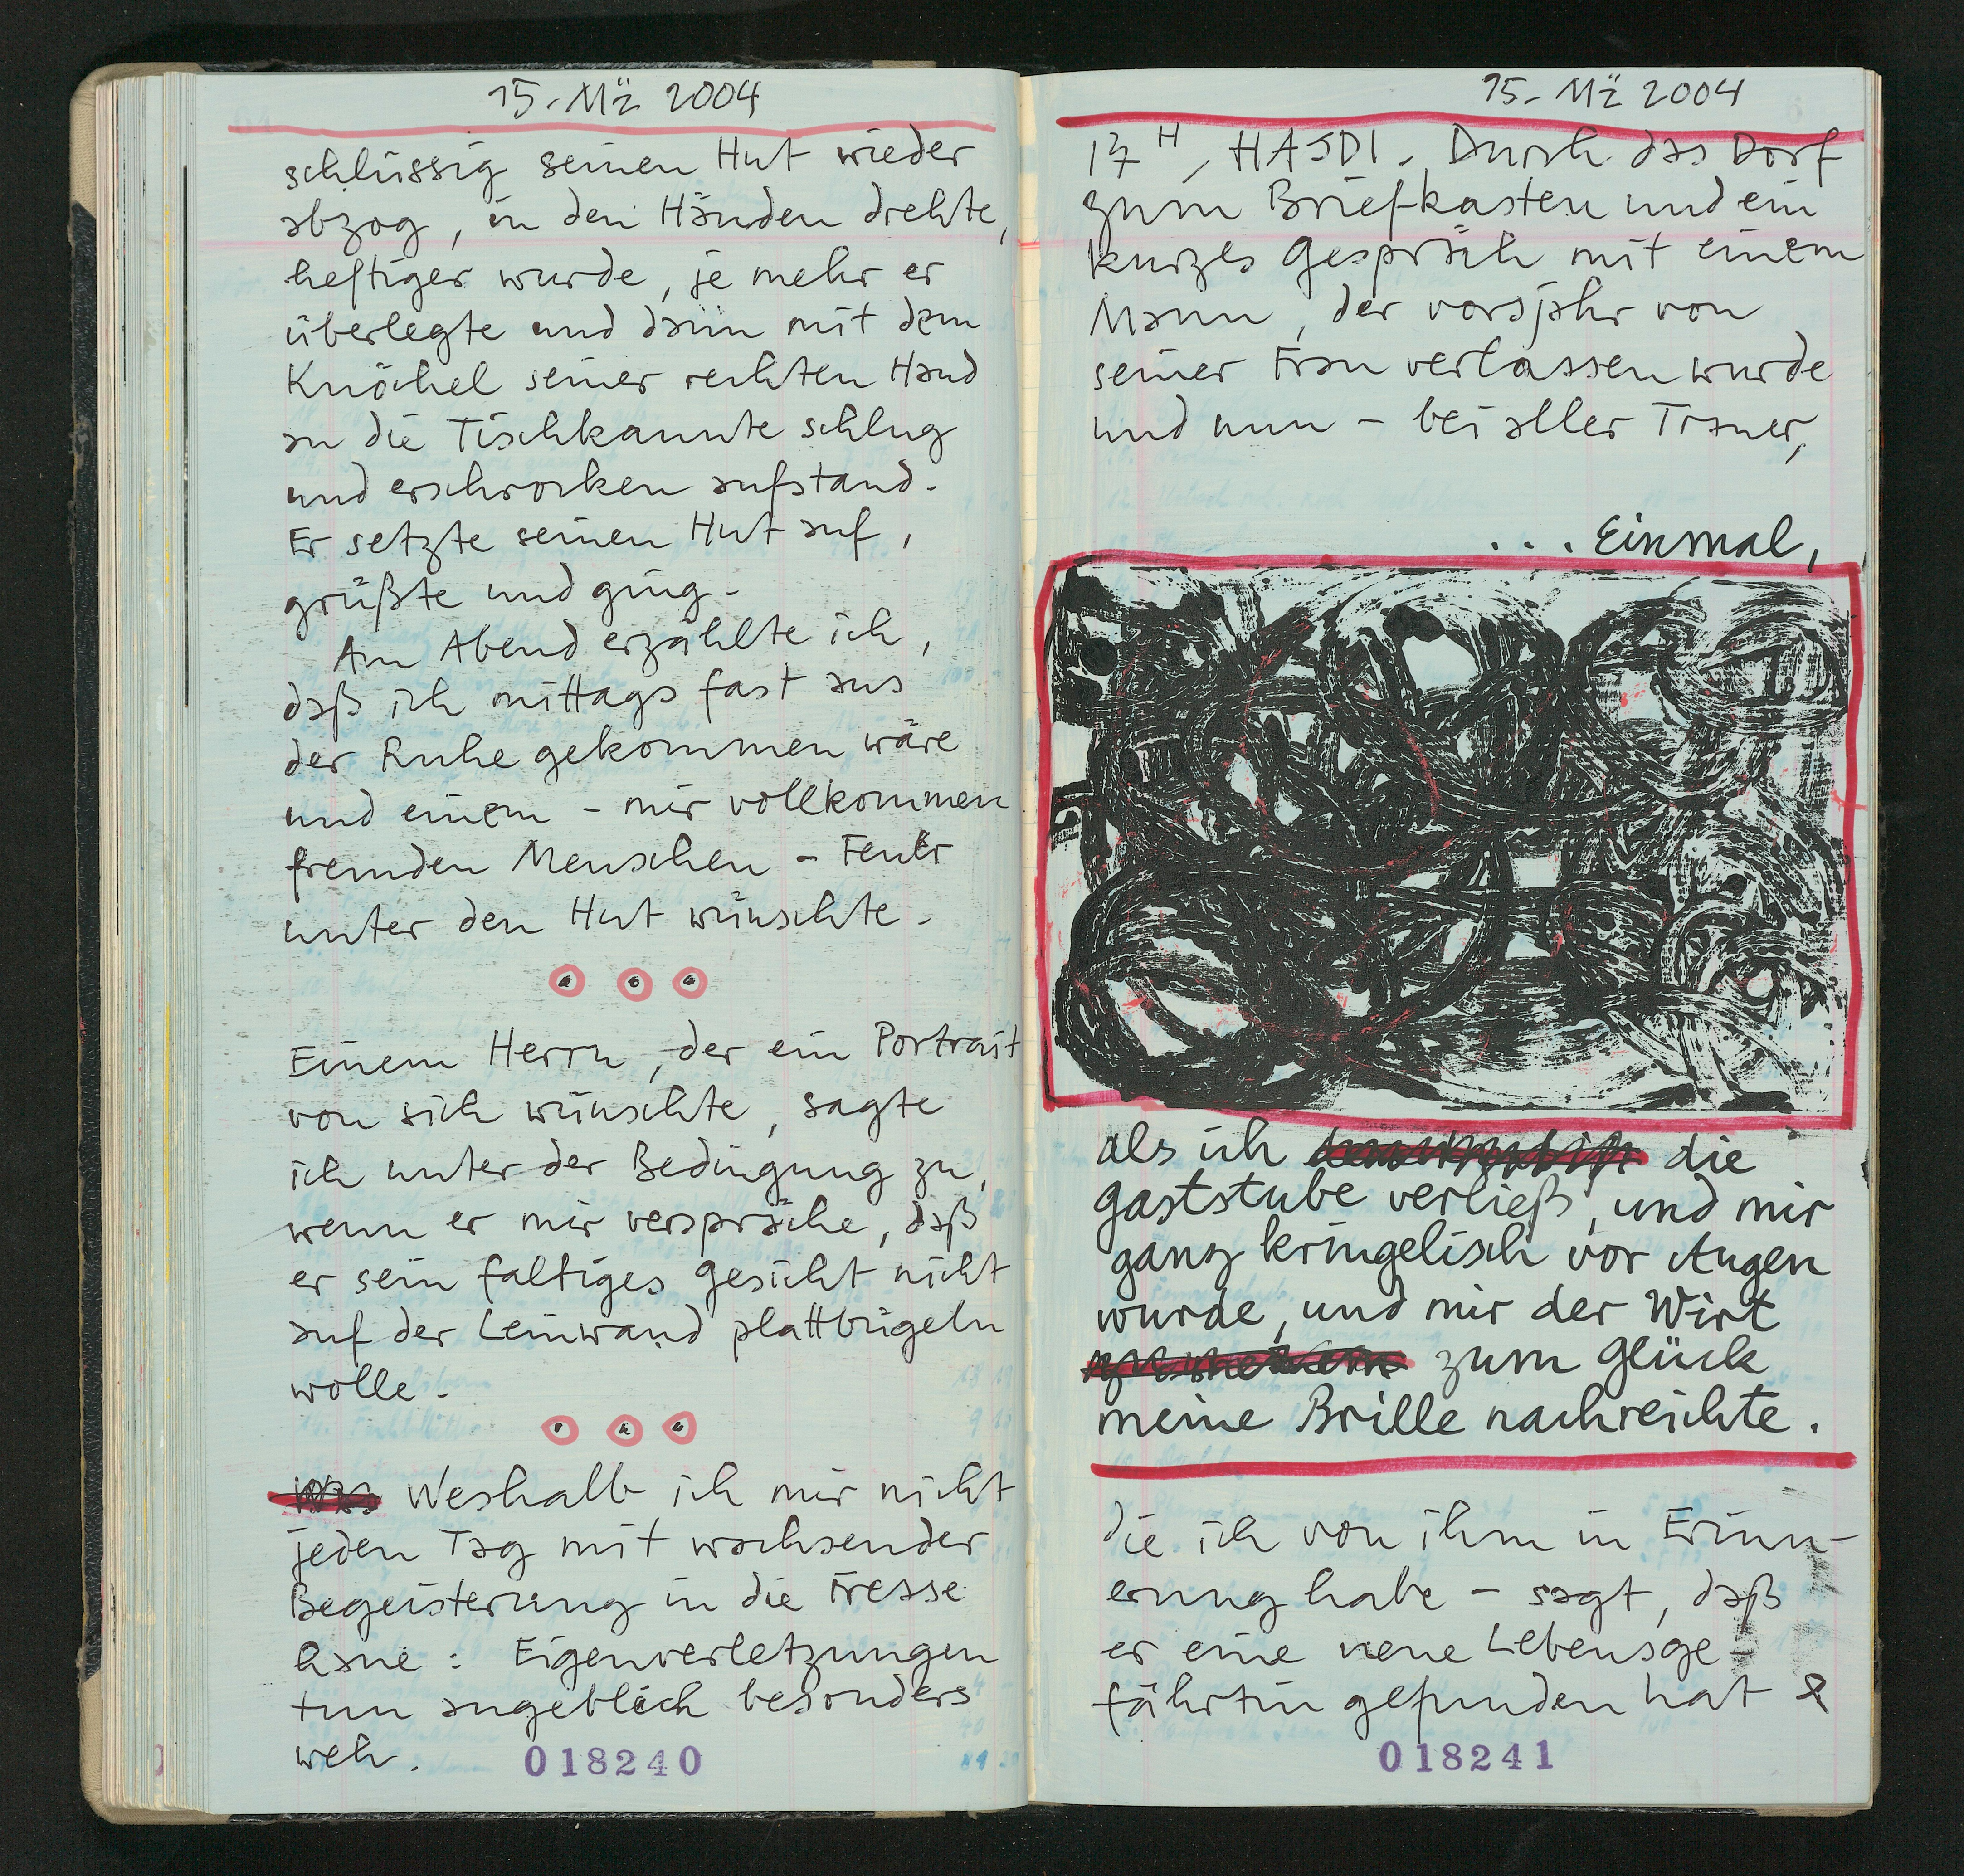 15. Mä 2004
schlüssig seinen Hut wieder
abzog, in den Händen drehte,
heftiger wurde, je mehr er
überlegte und dann mit dem
Knöchel seiner rechten Hand
an die Tischkannte schlug
und erschrocken aufstand.
Er setzte seinen Hut auf,
grüßte und ging.
Am Abend erzählte ich,
daß ich mittags fast aus
der Ruhe gekommen wäre
und einem – mir vollkommen
fremden Menschen – Feuer
unter den Hut wünschte.
Einem Herrn, der ein Portrait
von sich wünschte, sagte
ich unter der Bedingung zu,
wenn er mir verspräche, daß
er sein faltiges Gesicht nicht
auf der Leinwand plattbügeln
wolle.
Weshalb ich mir nicht
jeden Tag mit wachsender
Begeisterung in die Fresse
haue: Eigenverletzungen
tun angeblich besonders
weh.
018240
15. Mä 2004
17 H, HASDI. Durch das Dorf
zum Briefkasten und ein
kurzes Gespräch mit einem
Mann, der vorsjahr von
seiner Frau verlassen wurde
und nun – bei aller Trauer,
... Einmal,
als ich die
Gaststube verließ, und mir
ganz kringelisch vor Augen
wurde, und mir der Wirt
zum Glück
meine Brille nachreichte.
die ich von ihm in Erinn-
erung habe – sagt, daß
er eine neue Lebensge-
fährtin gefunden hat &
018241